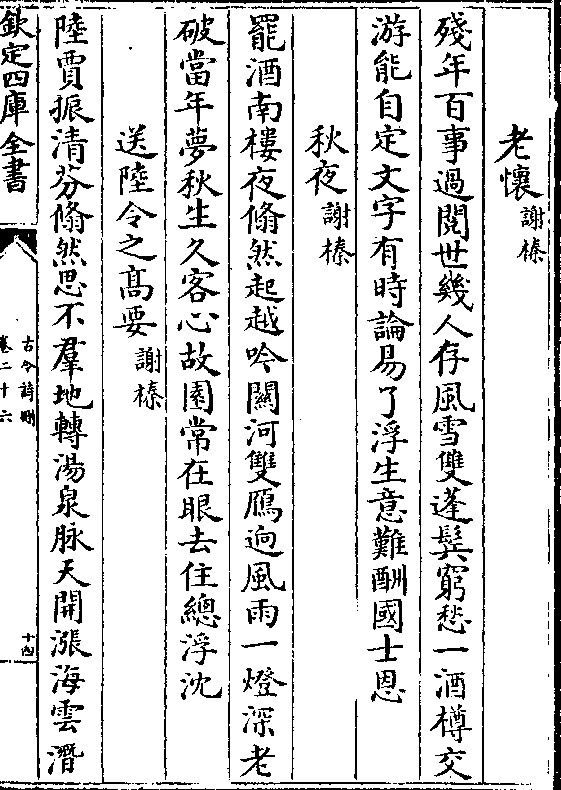 老懷 謝榛
殘年百事過閱世幾人存風雪雙蓬鬂窮愁一酒樽交
游能自定文字有時論易了浮生意難酬國士恩
秋夜 謝榛
罷酒南樓夜翛然起越吟關河雙鴈逈風雨一燈深老
破當年夢秋生久客心故園常在眼去住總浮沈
送陸令之髙要 謝榛
陸賈振清芬翛然思不羣地轉湯泉脉天開漲海雲潛
欽定四庫全書
古今詩刪
卷二十六
十四